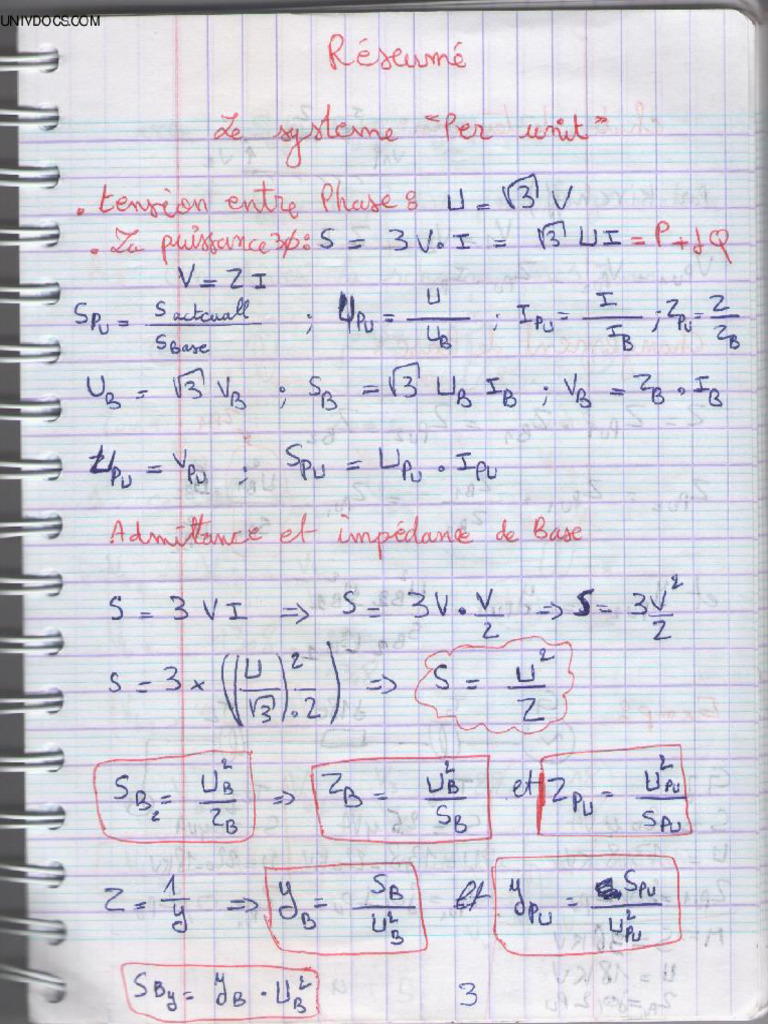 UNIVDOCS.COM
Résumé
Le systeme "Per unit"
. tension entre Phases U = √3 V
. La puissance 3φ: S = 3V·I = √3 UI = P + jQ
V = Z I
S_PU = S actcuall / S Base ; U_PU = U / U_B ; I_PU = I / I_B ; Z_PU = Z / Z_B
U_B = √3 V_B ; S_B = √3 U_B I_B ; V_B = Z_B · I_B
U_PU = V_PU ; S_PU = U_PU · I_PU
Admittance et impédance de Base
S = 3 V I => S = 3V · V/Z => S = 3V²/Z
S = 3 × ((U/√3)² · Z) => S = U²/Z
S_Bz = U_B²/Z_B => Z_B = U_B²/S_B et Z_PU = U_PU²/S_PU
Z = 1/y => y_B = S_B/U_B² et y_PU = S_PU/U_PU²
S_By = y_B · U_B²
3